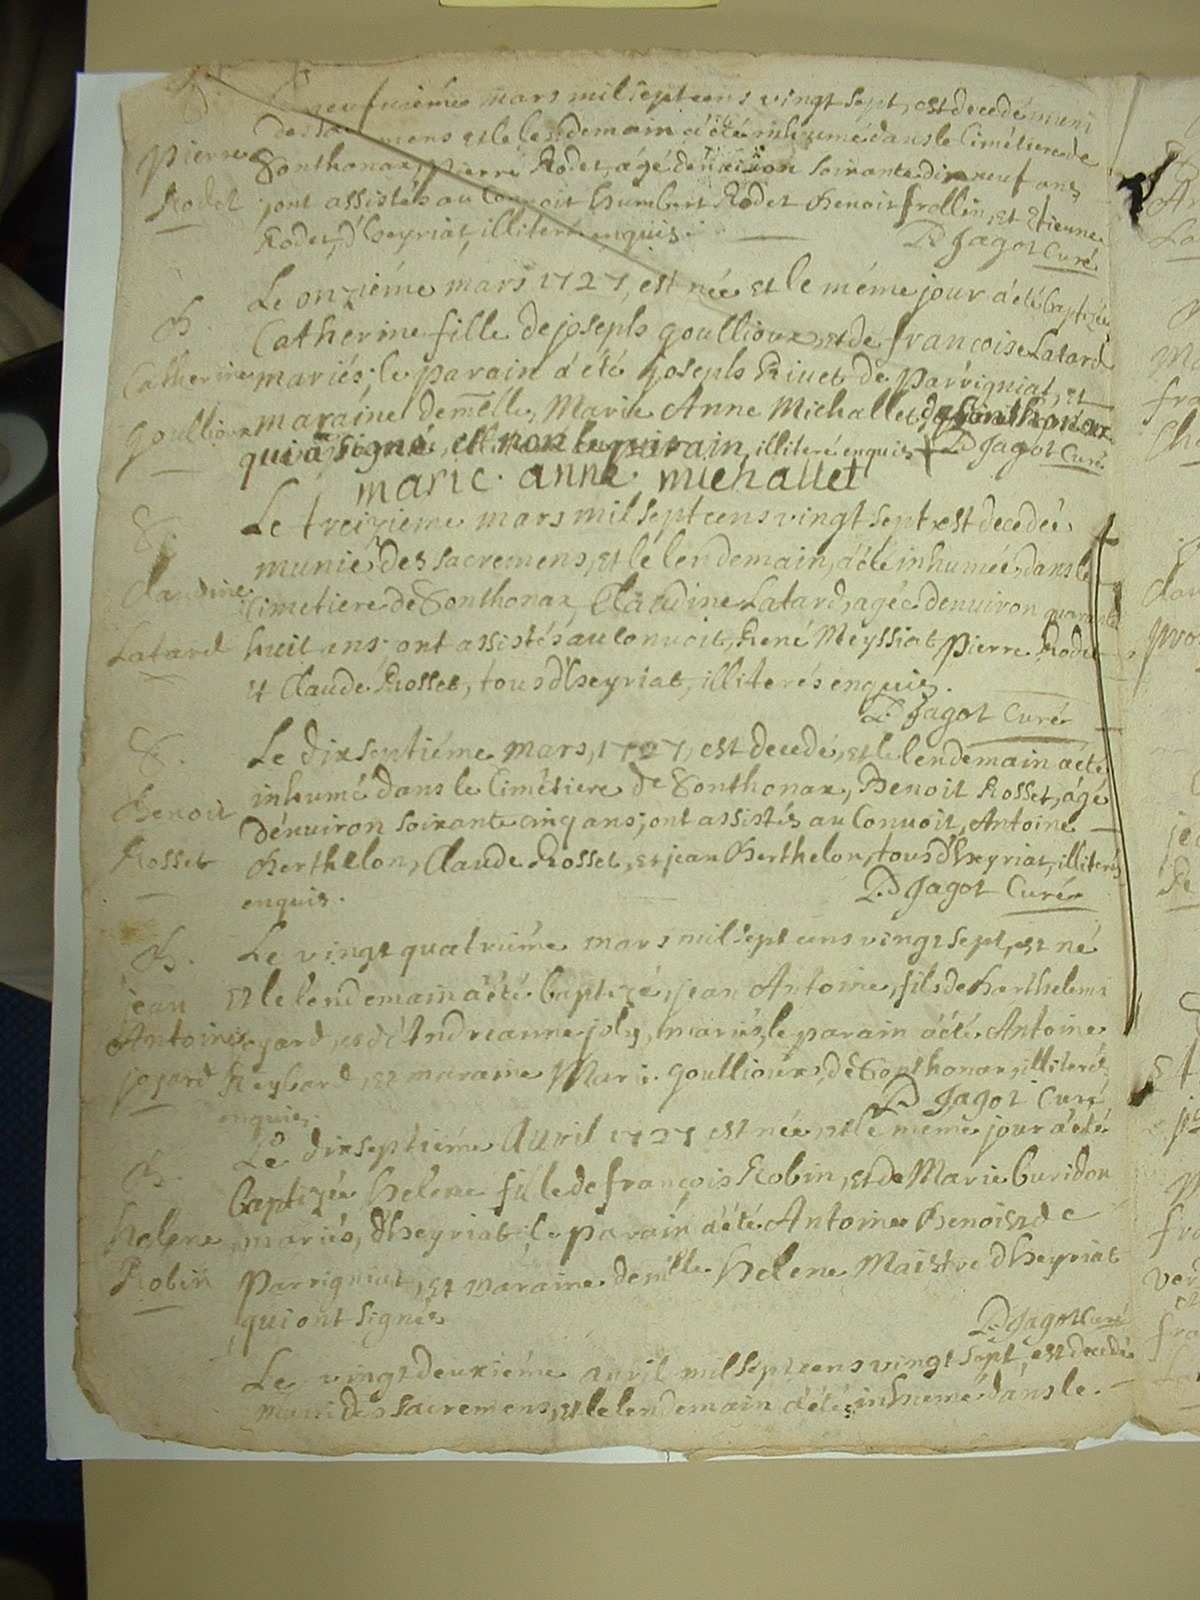 neufvième mars mil sept cens vingt sept, est decedé muni
des sa mens et le lendemain a été inhumé dans le Cimétiere de
Pierre Sonthonax, Pierre Rodet, agé denviron soixante dix neuf ans
Rodet ont assistés au Convoit humbert Rodet Benoit frollin, et Etienne
Rodet, d'heyriat, illiteré enquis.
D Jagot Curé
Le onziéme mars 1727, est née et le méme jour a été baptizée
B. Catherine fille de joseph goullioux, et de francoise Latard
Catherine mariés; le parain a été joseph Rivet de Parrigniat, et
goullioux maraine demelle, Marie Anne Michallet, de Sonthonax
qui a signé, et non le parain, illiteré enquis
D Jagot Curé
marie. anne. michallet
Le treizieme mars mil sept cens vingt sept est decedée
S. munie des sacremens, et le lendemain, a été inhumée, dans le
Claudine Cimetiere de Sonthonax, Claudine Latard, agée denviron quarante
Latard huit ans; ont assistés au Convoit, René Meyssiat Pierre Rodet
et Claude Rosset, tous d'heyriat, illiterés enquis.
D. Jagot Curé
S. Le dixseptiéme mars, 1727, est decedé, et le lendemain a été
inhumé dans le Cimétiere de Sonthonax, Benoit Rosset, agé
Benoit dénviron soixante cinq ans; ont assistés au Convoit, Antoine
Rosset Berthelon, Claude Rosset, et jean Berthelon, tous d'heyriat, illiterés
enquis.
D. Jagot Curé
B. Le vingt quatriéme mars mil sept cens vingt sept, est né
jean et le lendemain a été baptizé, jean Antoine, fils de Barthelemi
Antoine joyard, et d'Andreanne joly, mariés, le parain a été Antoine
joyard Reybard, et maraine Marie goullioux, de Sonthonax, illiterés
enquis.
D. Jagot Curé
Le dixseptiéme Avril 1727 est née, et le méme jour a été
B. baptizée helene fille de françois Robin, et de Marie buridon
helene mariés, d'heyriat; le parain a été Antoine Benoist de
Robin Parrigniat, et maraine demlle. helene Maistre d'heyriat
qui ont signés
D. Jagot Curé
Le vingt deuxiéme avril mil sept cens vingt sept, est decedé
muni des sacremens, et le lendemain a été inhumé dans le